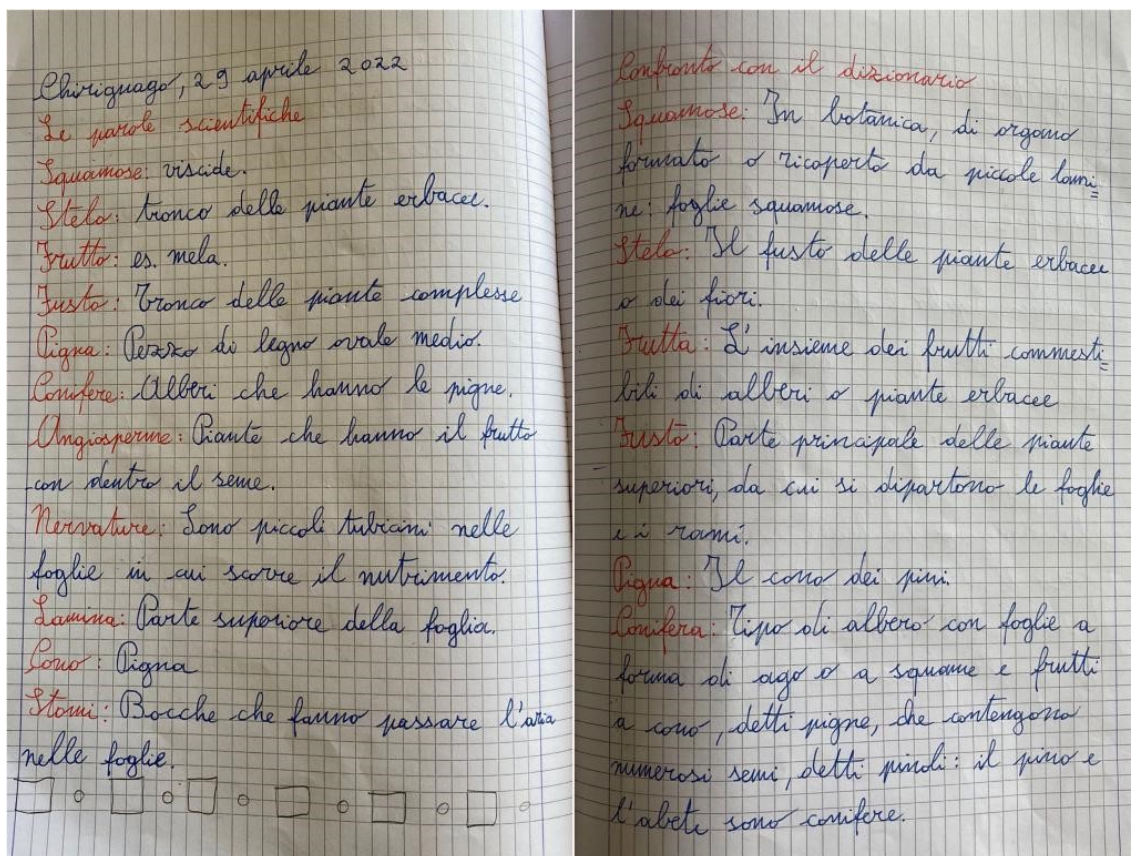 Chirignago, 29 aprile 2022
Le parole scientifiche
Squamose: viscide.
Stelo: tronco delle piante erbacee.
Frutto: es. mela.
Fusto: Tronco delle piante complesse
Pigna: Pezzo di legno ovale medio.
Conifere: Alberi che hanno le pigne.
Angiosperme: Piante che hanno il frutto
con dentro il seme.
Nervature: Sono piccoli tubicini nelle
foglie in cui scorre il nutrimento.
Lamina: Parte superiore della foglia.
Cono: Pigna
Stomi: Bocche che fanno passare l'aria
nelle foglie.
Confronto con il dizionario
Squamose: In botanica, di organo
formato o ricoperto da piccole lami=
ne: foglie squamose.
Stelo: Il fusto delle piante erbacee
o dei fiori.
Frutta: L'insieme dei frutti commesti=
bili di alberi o piante erbacee
Fusto: Parte principale delle piante
superiori, da cui si dipartono le foglie
e i rami.
Pigna: Il cono dei pini.
Conifera: Tipo di albero con foglie a
forma di ago o a squame e frutti
a cono, detti pigne, che contengono
numerosi semi, detti pinoli: il pino e
l'abete sono conifere.